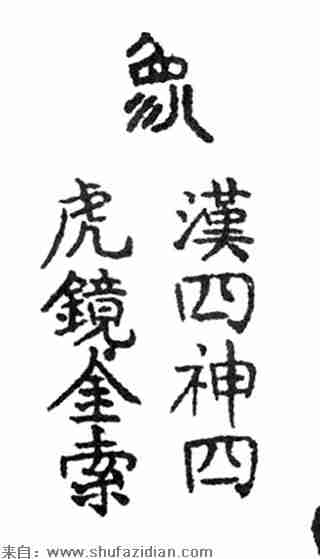 漢四神四
虎鏡金索
来自：www.shufazidian.com